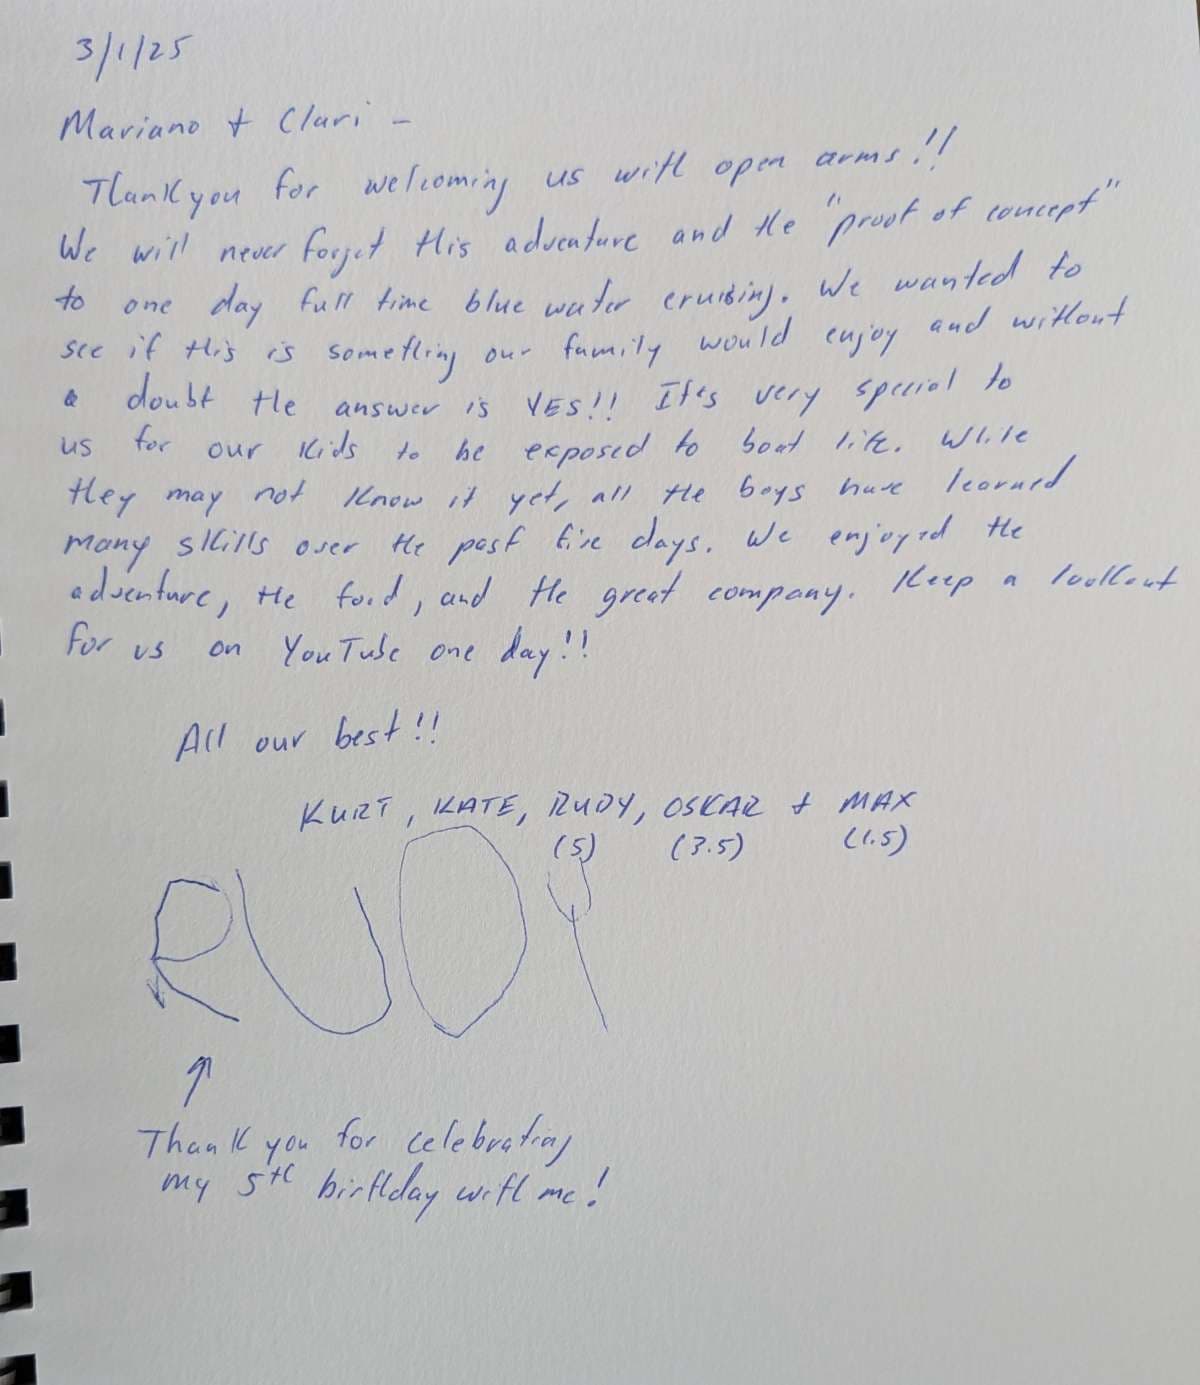 3/1/25
Mariano + Clari -
Thank you for welcoming us with open arms!!
We will never forget this adventure and the "proof of concept"
to one day full time blue water cruising. We wanted to
see if this is something our family would enjoy and without
a doubt the answer is YES!! It's very special to
us for our kids to be exposed to boat life. While
they may not know it yet, all the boys have learned
many skills over the past five days. We enjoyed the
adventure, the food, and the great company. Keep a lookout
for us on YouTube one day!!
All our best!!
KURT, KATE, RUDY, OSKAR + MAX
(5) (3.5) (1.5)
RUDY
Thank you for celebrating
my 5th birthday with me!